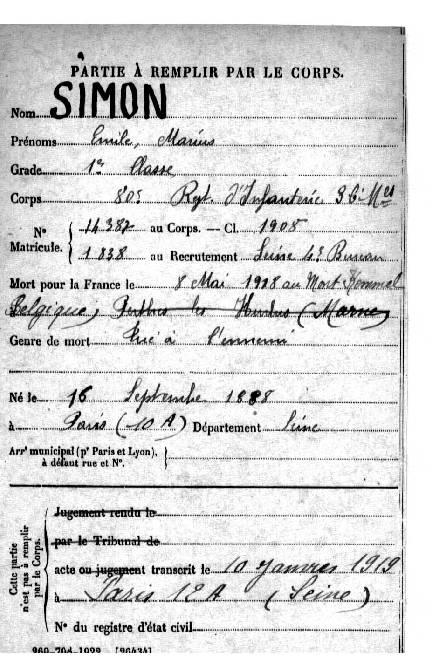 PARTIE À REMPLIR PAR LE CORPS.
Nom SIMON
Prénoms Emile, Marius
Grade 1re Classe
Corps 80e Regt d'Infanterie
N° Matricule. { 14382 au Corps. — Cl. 1908
1838 au Recrutement Seine 4e Bureau
Mort pour la France le 8 Mai 1918 au Mont Kemmel
Belgique, Perthes les Hurlus (Marne)
Genre de mort Tué à l'ennemi
Né le 16 Septembre 1888
à Paris (10 A) Département Seine
Arrt municipal (pr Paris et Lyon), à défaut rue et N°. {
Cette partie n'est pas à remplir par le Corps. {
Jugement rendu le
par le Tribunal de
acte ou jugement transcrit le 10 Janvier 1919
à Paris 12 A (Seine)
N° du registre d'état civil